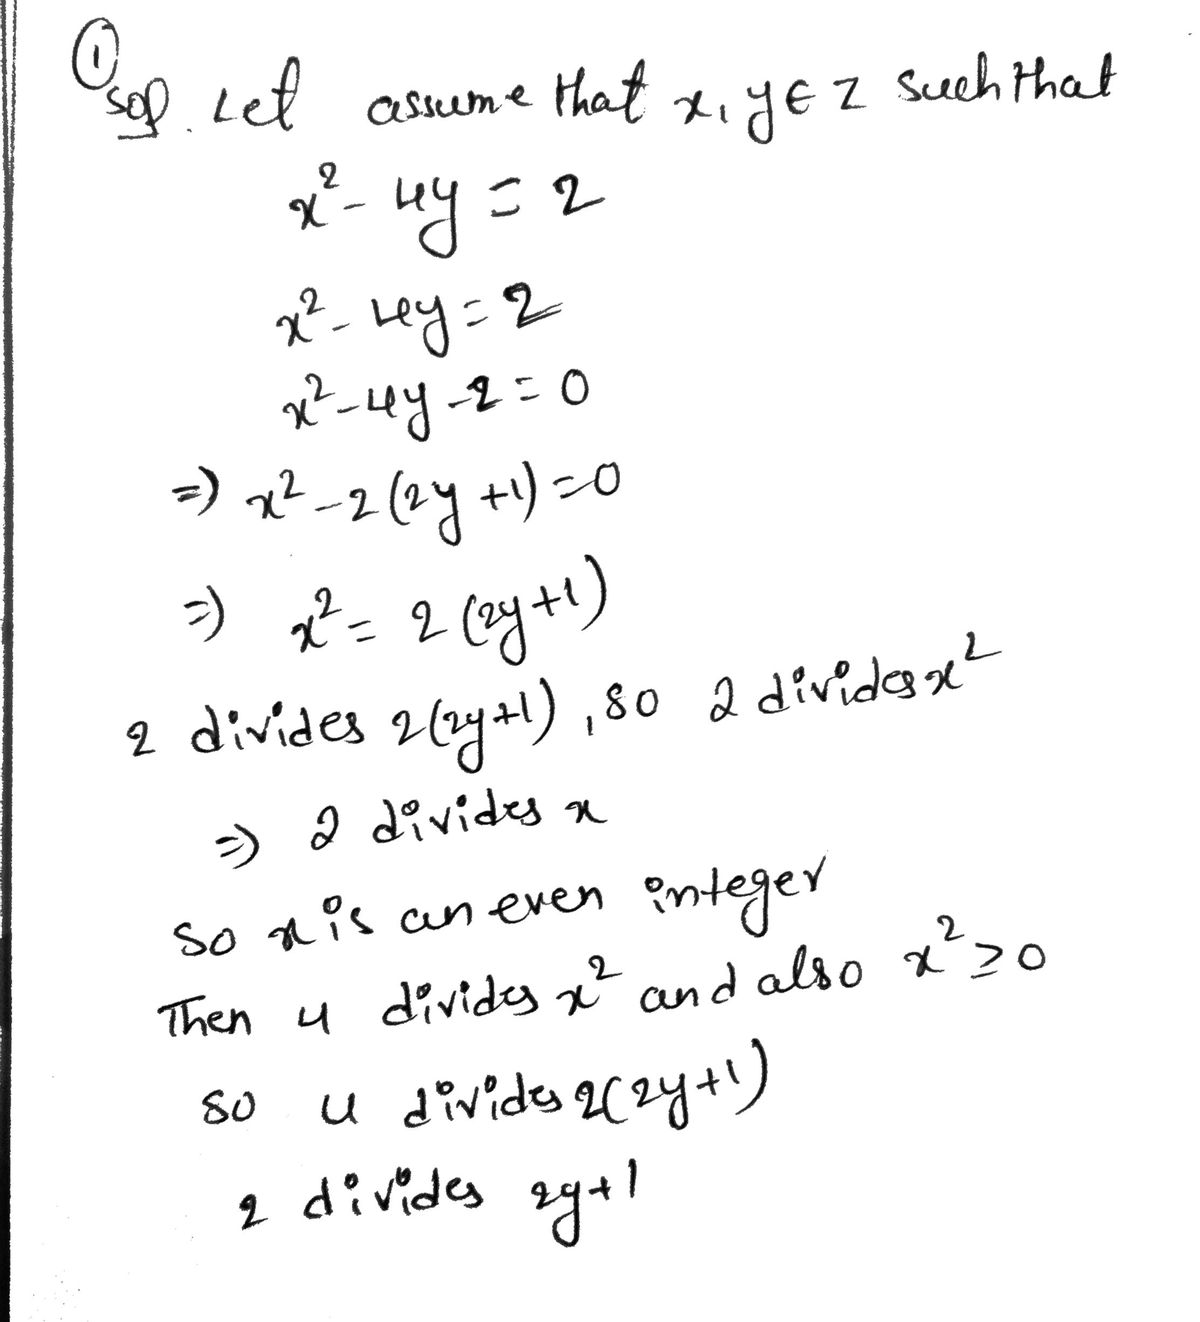 ①
Sol. Let assume that x, y ∈ Z such that
x² - 4y = 2
x² - 4y = 2
x² - 4y - 2 = 0
=) x² - 2 (2y + 1) = 0
=) x² = 2 (2y + 1)
2 divides 2(2y+1), so 2 divides x²
=) 2 divides x
So x is an even integer
Then 4 divides x² and also x² ≥ 0
so 4 divides 2(2y+1)
2 divides 2y+1